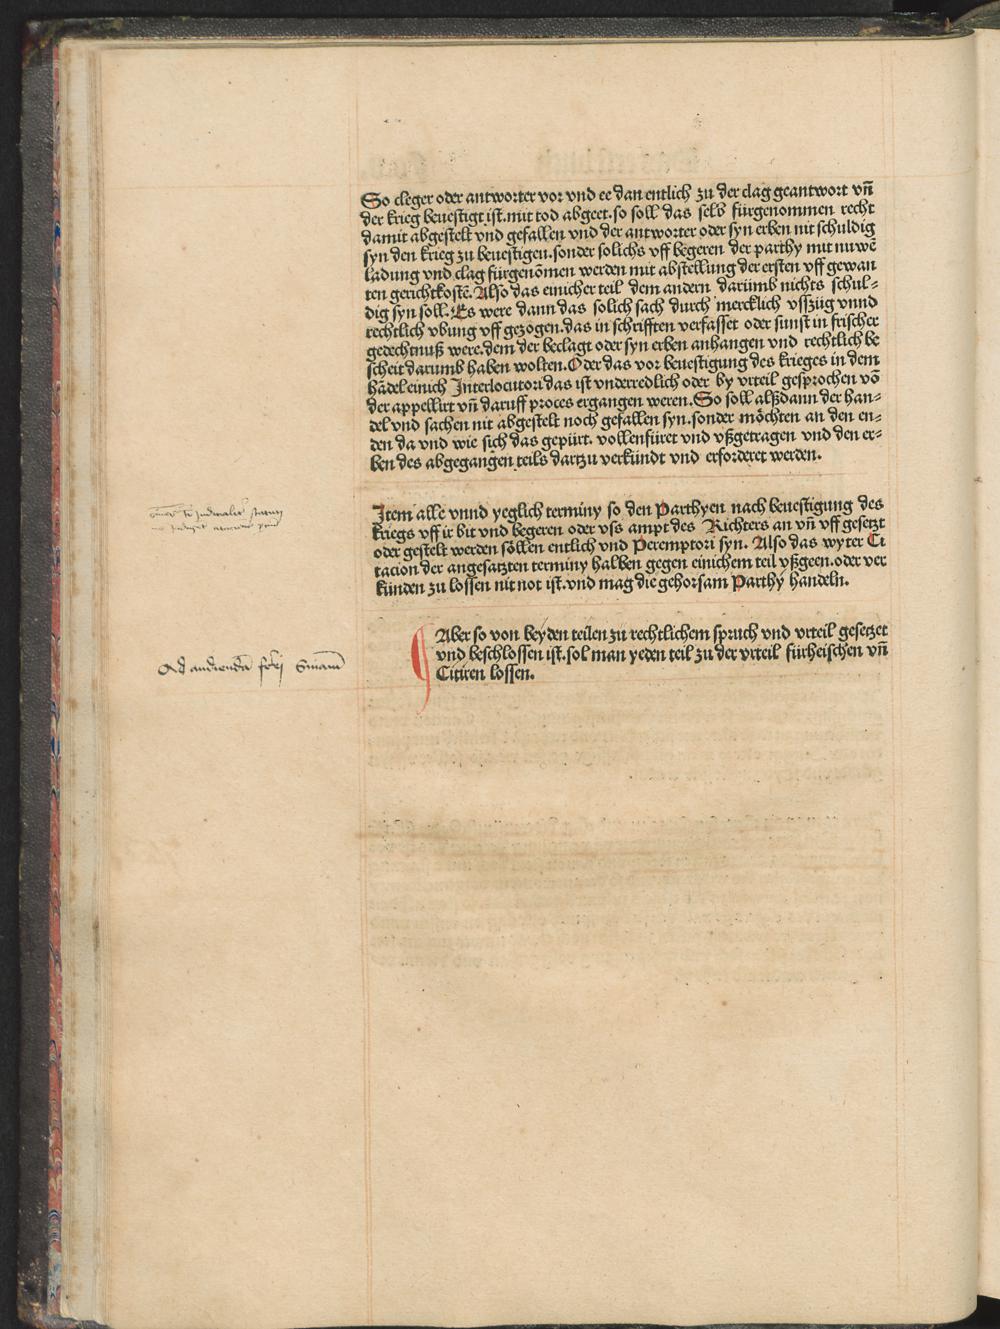 So cleger oder antworter vor vnd ee dan entlich zu der clag geantwort vn̄
der krieg beuestigt ist. mit tod abgeet. so soll das selb fürgenommen recht
damit abgestelt vnd gefallen vnd der antworter oder syn erben nit schuldig
syn den krieg zu beuestigen. sonder solichs vff begeren der parthy mit nuwē
ladung vnd clag fürgenōmen werden mit abstellung der ersten vff gewan
ten gerichtkostē. Also das einicher teil dem andern darümb nichts schul⸗
dig syn soll. Es were dann das solich sach durch mercklich vsszüg vnnd
rechtlich vbung vff gezogen. das in schrifften verfasset oder sunst in frischer
gedechtnuß were. dem der beclagt oder syn erben anhangen vnd rechtlich be
scheit darumb haben wolten. Oder das vor beuestigung des krieges in dem
hādel einich Interlocutori das ist vnderredlich oder by vrteil gesprochen vō
der appellirt vn̄ daruff proces ergangen weren. So soll alßdann der han⸗
del vnd sachen nit abgestelt noch gefallen syn. sonder möchten an den en⸗
den da vnd wie sich das gepürt. vollenfüret vnd vßgetragen vnd den er⸗
ben des abgegangen teils dartzu verkündt vnd erforderet werden.
Item alle vnnd yeglich terminy so den Parthyen nach beuestigung des
kriegs vff ir bit vnd begeren oder vss ampt des Richters an vn̄ vff gesetzt
oder gestelt werden söllen entlich vnd Peremptori syn. Also das wyter Ci
tacion der angesatzten terminy halben gegen einichem teil vßgeen. oder ver
künden zu lossen nit not ist. vnd mag die gehorsam Parthy handeln.
Ad audiendā
¶ Aber so von beyden teilen zu rechtlichem spruch vnd vrteil gesetzet
vnd beschlossen ist. sol man yeden teil zu der vrteil fürheischen vn̄
Citiren lossen.